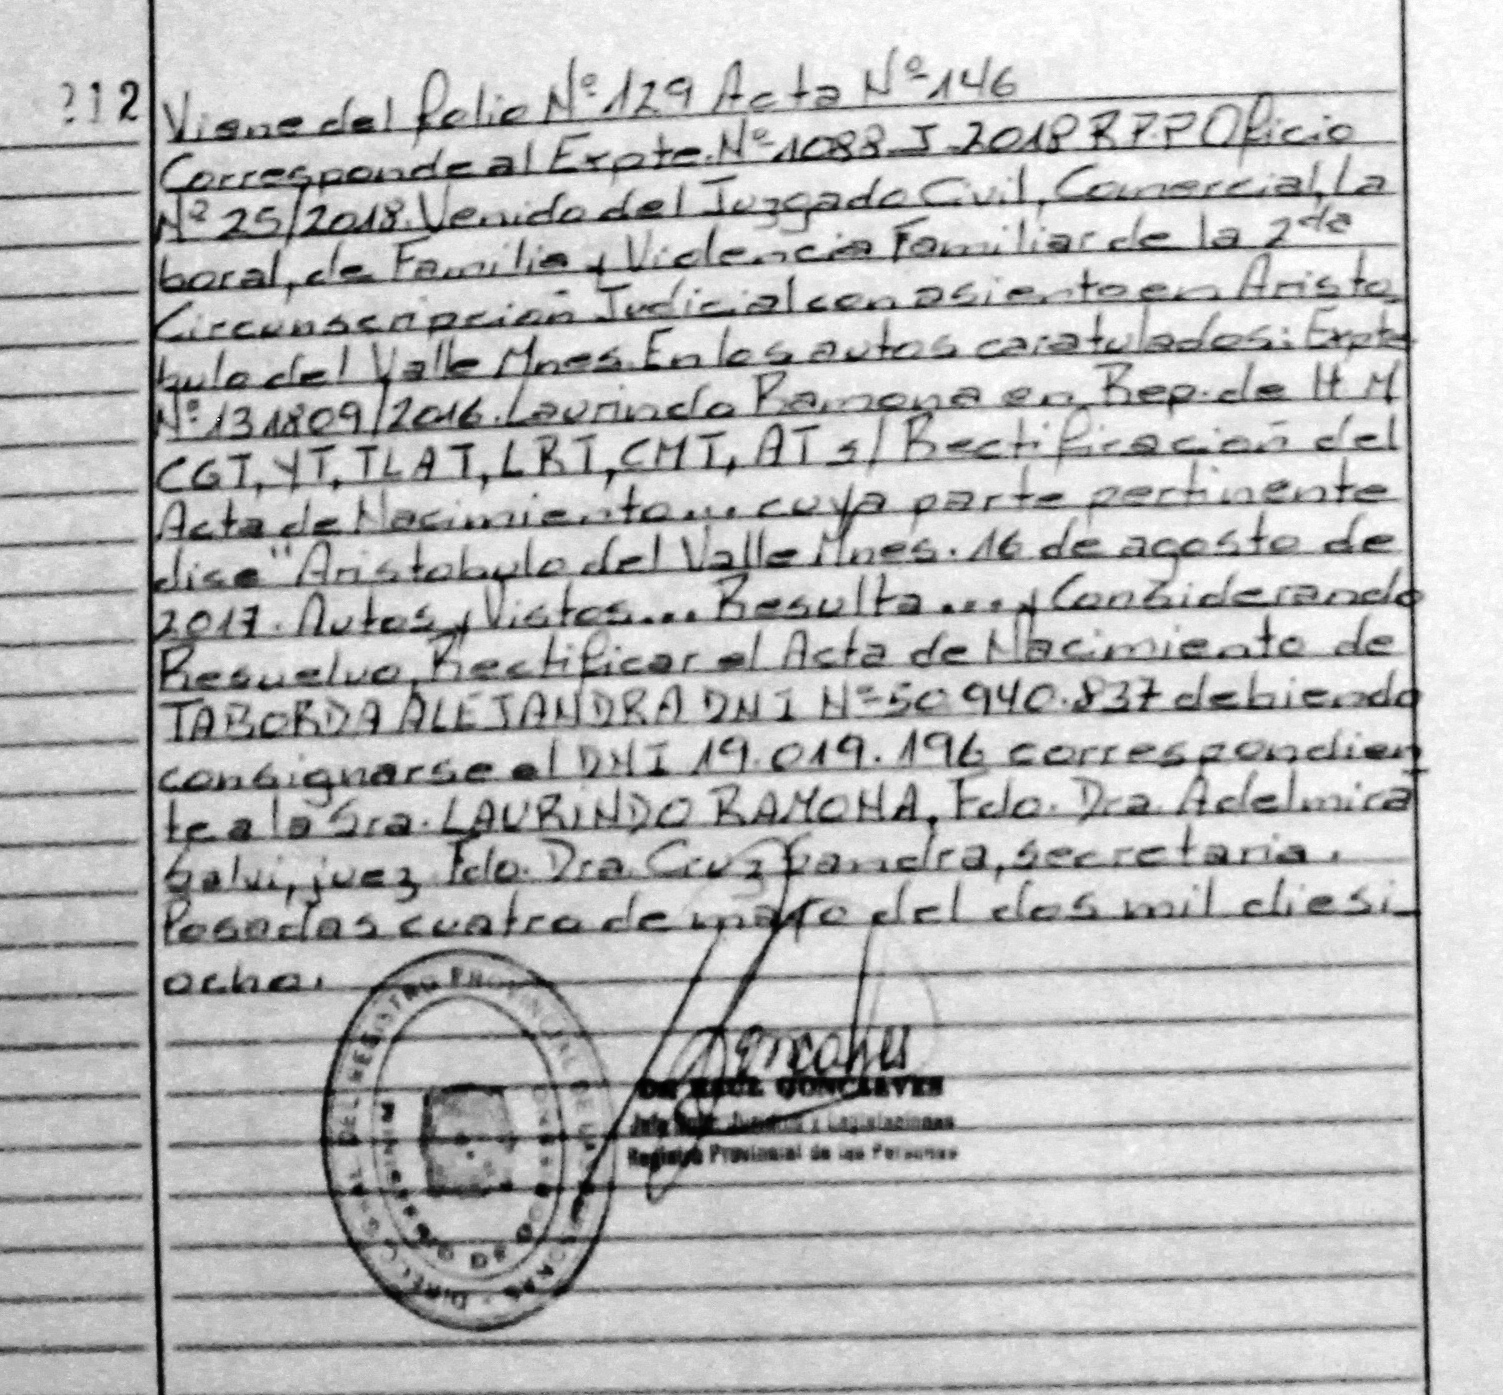 212
Viene del folio Nº 129 Acta Nº 146
Corresponde al Expte. Nº 1088 J 2018 R.P.P Oficio
Nº 25/2018. Venido del Juzgado Civil, Comercial, La
boral, de Familia y Violencia Familiar de la 2da
Circunscripción Judicial con asiento en Aristo
bulo del Valle Mnes. En los autos caratulados: Expte
Nº 131809/2016. Laurindo Ramona en Rep. de H M
CGT, YT, TLAT, LRT, CMT, AT s/ Rectificación del
Acta de Nacimiento... cuya parte pertinente
dise "Aristobulo del Valle Mnes. 16 de agosto de
2017. Autos y Vistos... Resulta.... y Considerando
Resuelvo, Rectificar el Acta de Nacimiento de
TABORDA ALEJANDRA DNI Nº 50.940.837 debiendo
consignarse el DNI 19.019.196 correspondien
te a la Sra. LAURINDO RAMONA. Fdo. Dra. Adelmira
Galvi, juez Fdo. Dra. Cruz Sandra, secretaria.
Posadas cuatro de del dos mil diesi
ocho.
RAUL GONCLAVES
Jefe y Legislaciones
Registro Provincial de las Personas
DEL REGISTRO PROVINCIAL DE LAS PERSONAS - DIRECC GRAL
MINISTERIO DE GOBIERNO